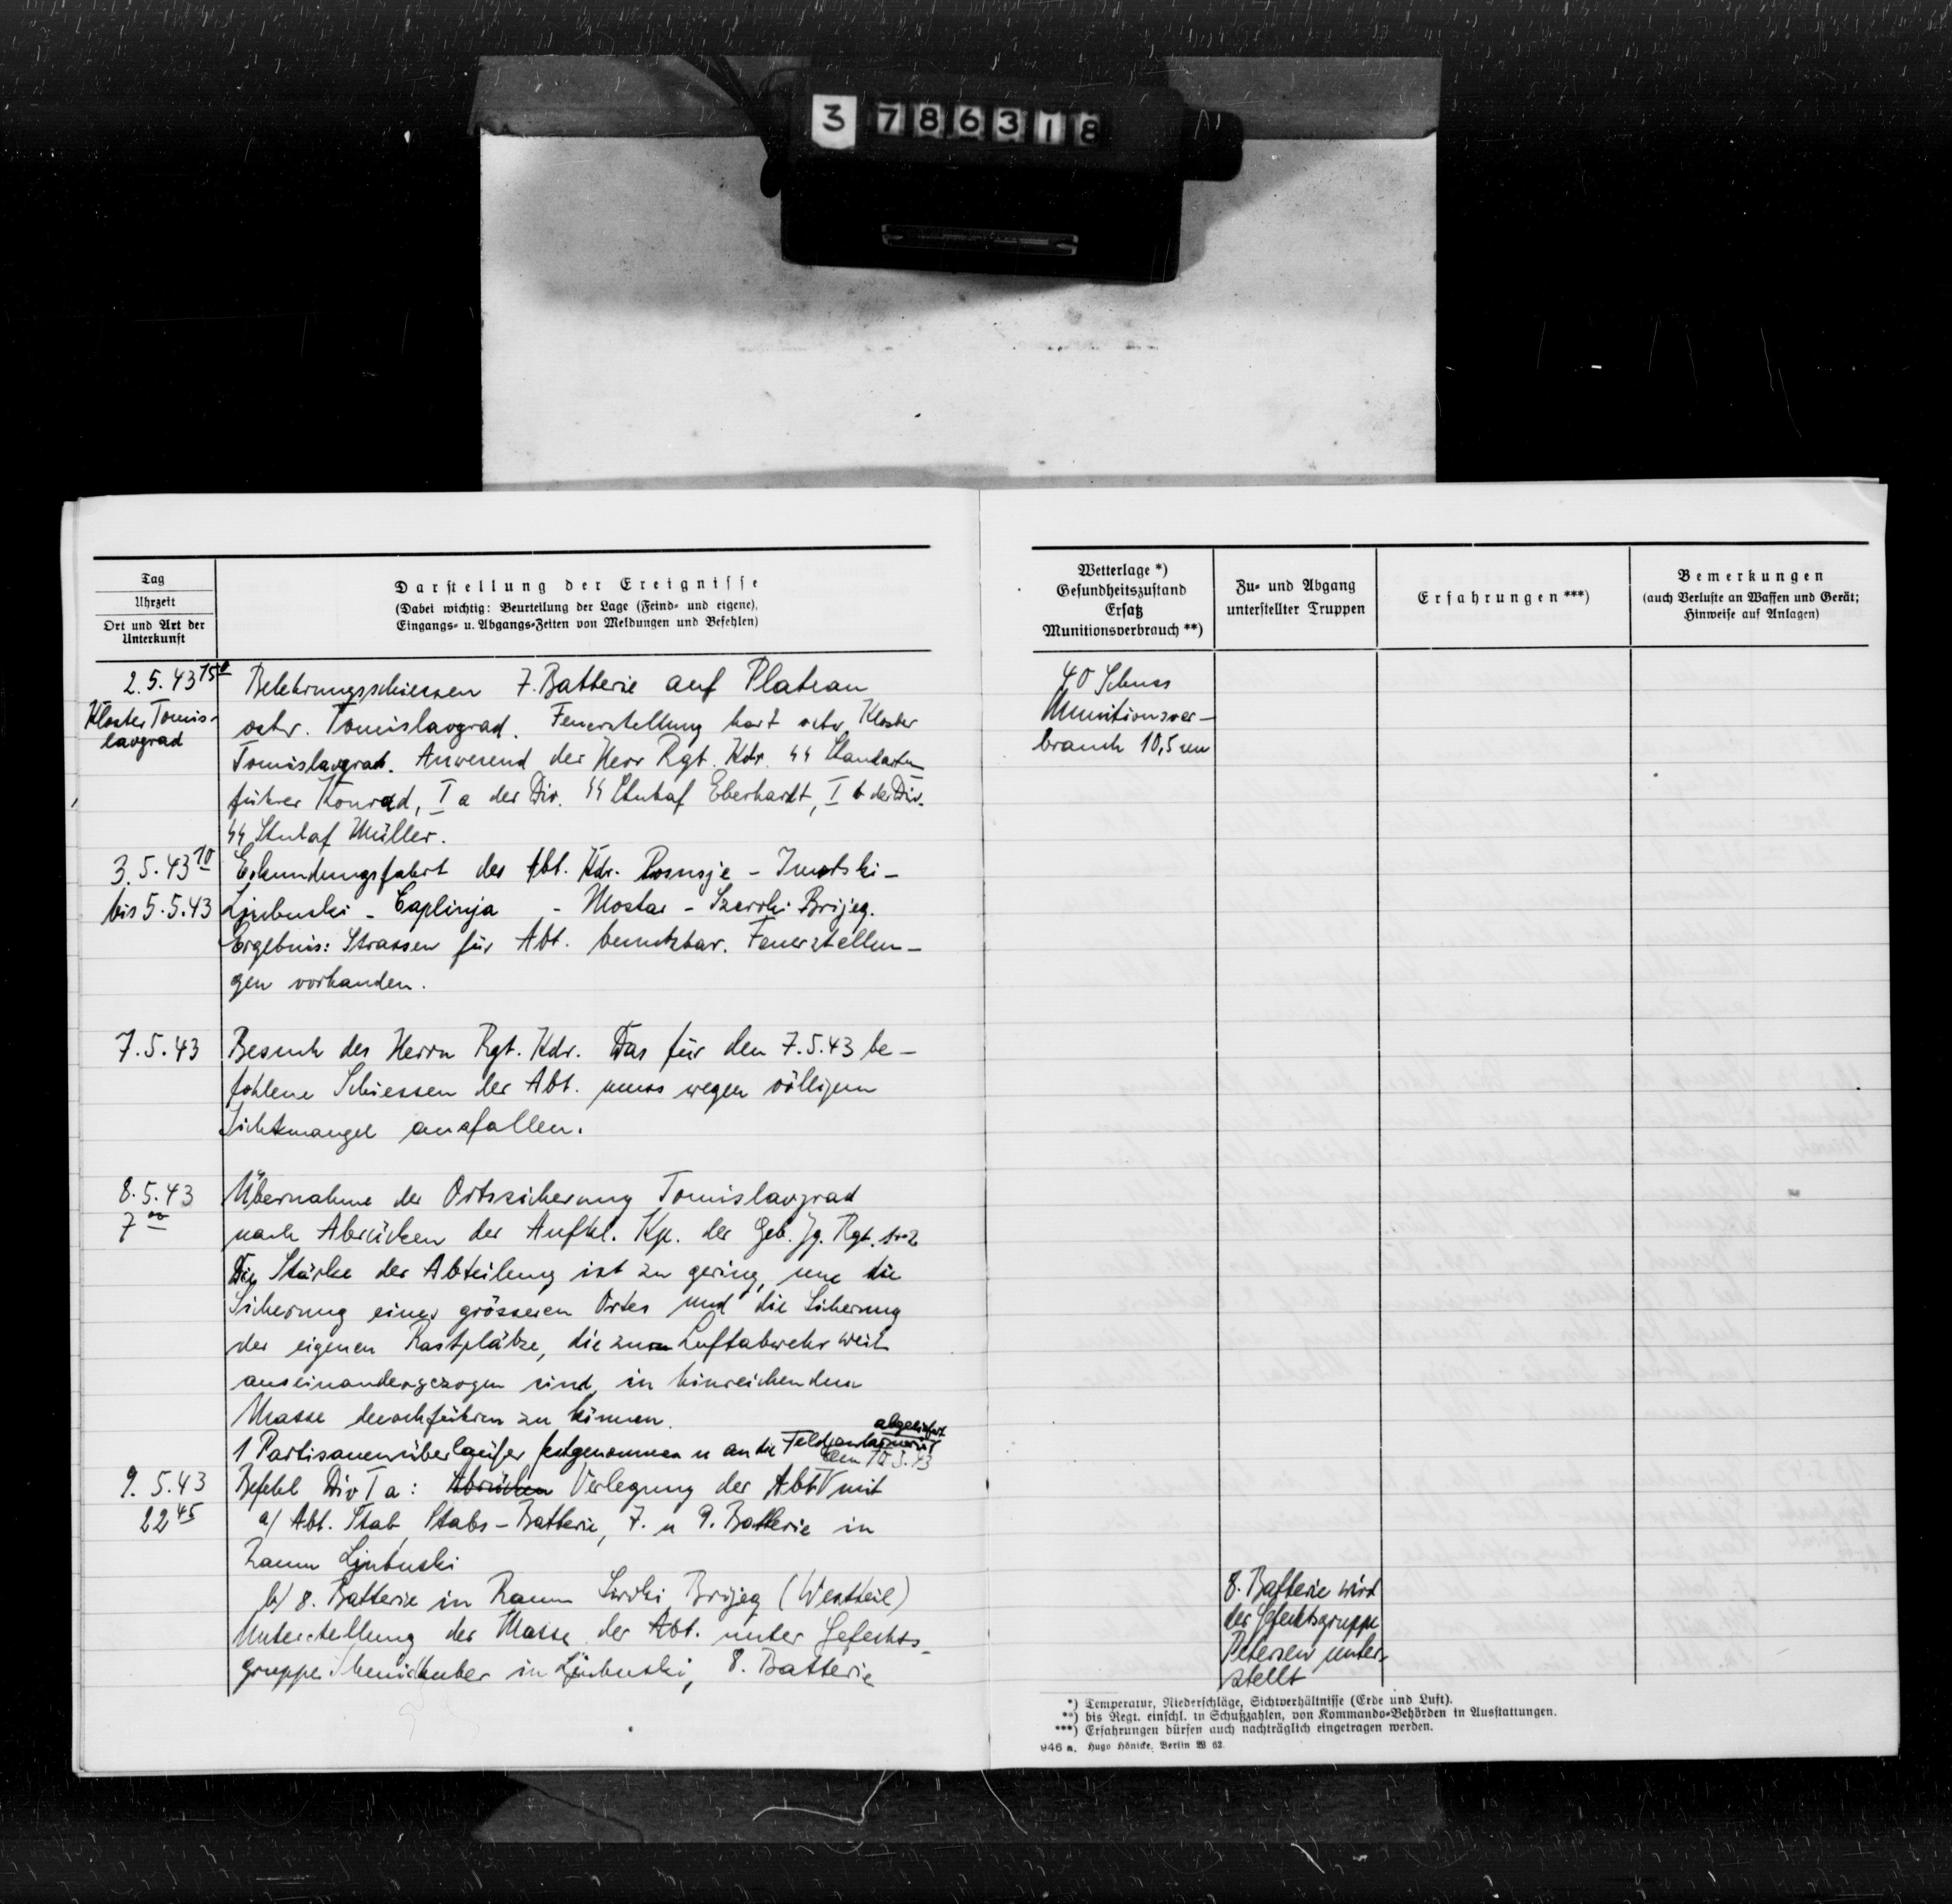 3 786318
Tag
Uhrzeit
Ort und Art der
Unterkunft
Darstellung der Ereignisse
(Dabei wichtig: Beurteilung der Lage (Feind- und eigene),
Eingangs- u. Abgangs-Zeiten von Meldungen und Befehlen)
2.5.43 15⁰
Kloster Tomis-
lavgrad
Belehrungsschiessen 7. Batterie auf Plateau
ostw. Tomislavgrad. Feuerstellung hart ostw. Kloster
Tomislavgrad. Anwesend der Herr Rgt. Kdr. SS Standarten
führer Konrad, Ia der Div. SS Stubaf Eberhardt, I b der Div.
SS Stubaf Müller.
3.5.43 10
bis 5.5.43
Erkundungsfahrt des Abt. Kdr. Posusje - Imotski -
Ljubuski - Caplinja - Mostar - Brijeg.
Ergebnis: Strassen für Abt. benutzbar. Feuerstellun-
gen vorhanden.
7.5.43
Besuch des Herrn Rgt. Kdr. Das für den 7.5.43 be-
fohlene Schiessen der Abt. muss wegen völligem
Sichtmangel ausfallen.
8.5.43
7⁰⁰
Übernahme der Ortssicherung Tomislavgrad
nach Abrücken der Aufkl. Kp. der Geb. Jg. Rgt.
Die Stärke der Abteilung ist zu gering, um die
Sicherung eines grösseren Ortes und die Sicherung
der eigenen Rastplätze, die zur Luftabwehr weit
auseinandergezogen sind, in hinreichendem
Masse durchführen zu können.
1 Partisanenüberläufer festgenommen u an die Feldgendarmerie abgeliefert
9.5.43
22⁴⁵
Befehl Div Ia: Abrücken Verlegung der Abt. mit
a) Abt. Stab, Stabs-Batterie, 7. u 9. Batterie in
Raum Ljubuski
b) 8. Batterie in Raum Siroki Brijeg (Westteil)
Unterstellung der Masse der Abt. unter Gefechts-
gruppe in Ljubuski, 8. Batterie
Wetterlage *)
Gesundheitszustand
Ersatz
Munitionsverbrauch **)
Zu- und Abgang
unterstellter Truppen
Erfahrungen ***)
Bemerkungen
(auch Verluste an Waffen und Gerät;
Hinweise auf Anlagen)
40 Schuss
Munitionsver-
brauch 10,5 cm
8. Batterie wird
der Gefechtsgruppe
Petersen unter-
stellt
*) Temperatur, Niederschläge, Sichtverhältnisse (Erde und Luft).
**) bis Regt. einschl. in Schußzahlen, von Kommando-Behörden in Ausstattungen.
***) Erfahrungen dürfen auch nachträglich eingetragen werden.
946 a. Hugo Hönicke, Berlin W 62.